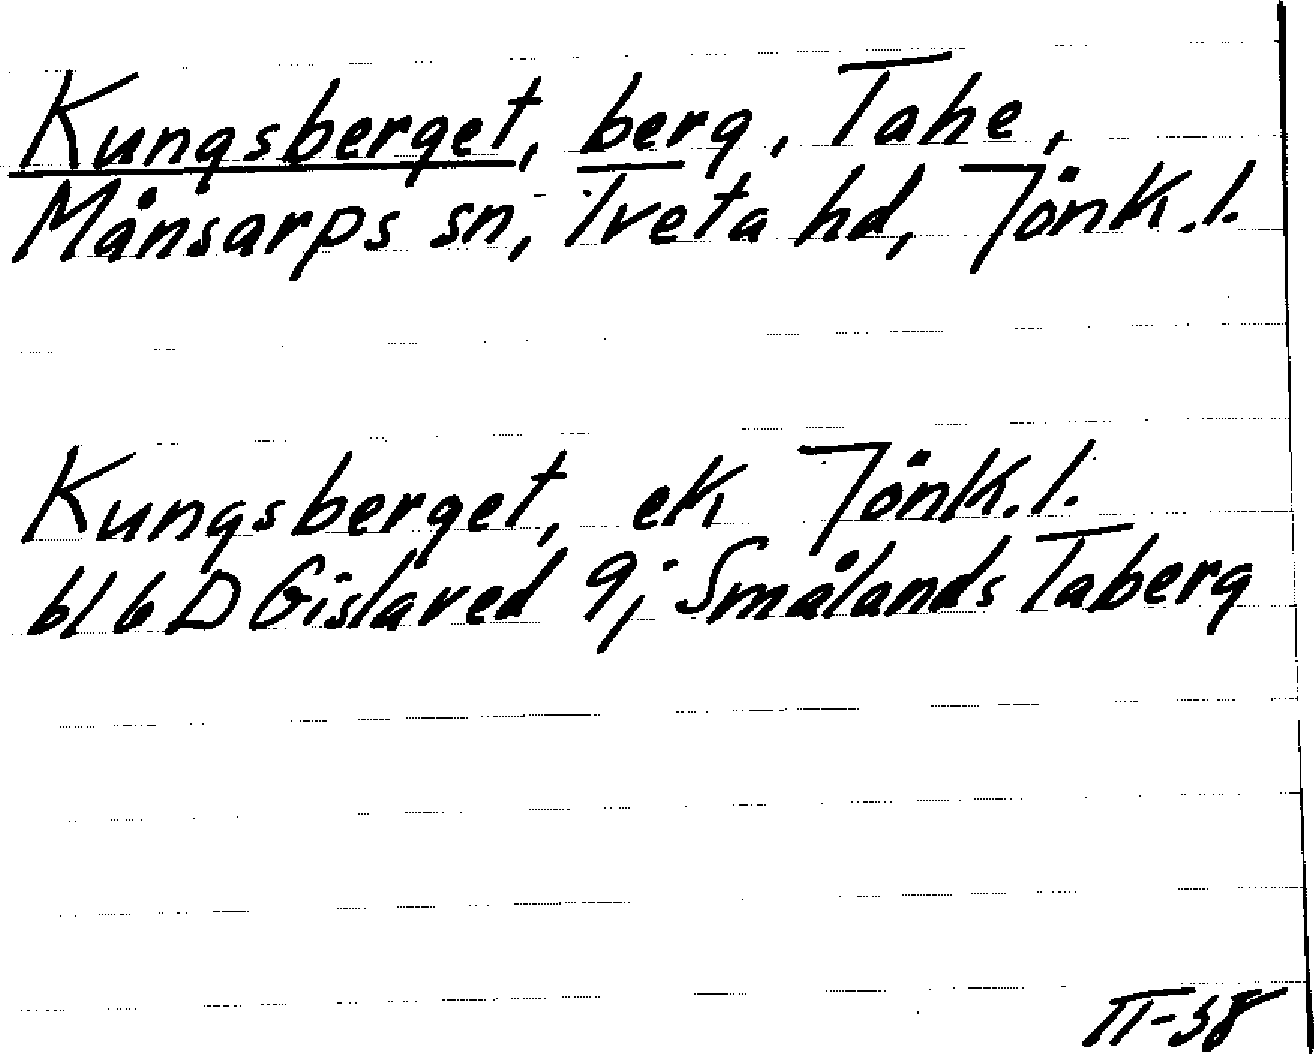 Kungsberget, berg, Tahe,
Månsarps sn, Tveta hd, Jönk.l.
Kungsberget, ek Jönk.l.
bl 6 D Gislaved 9; Smålands Taberg
II-38